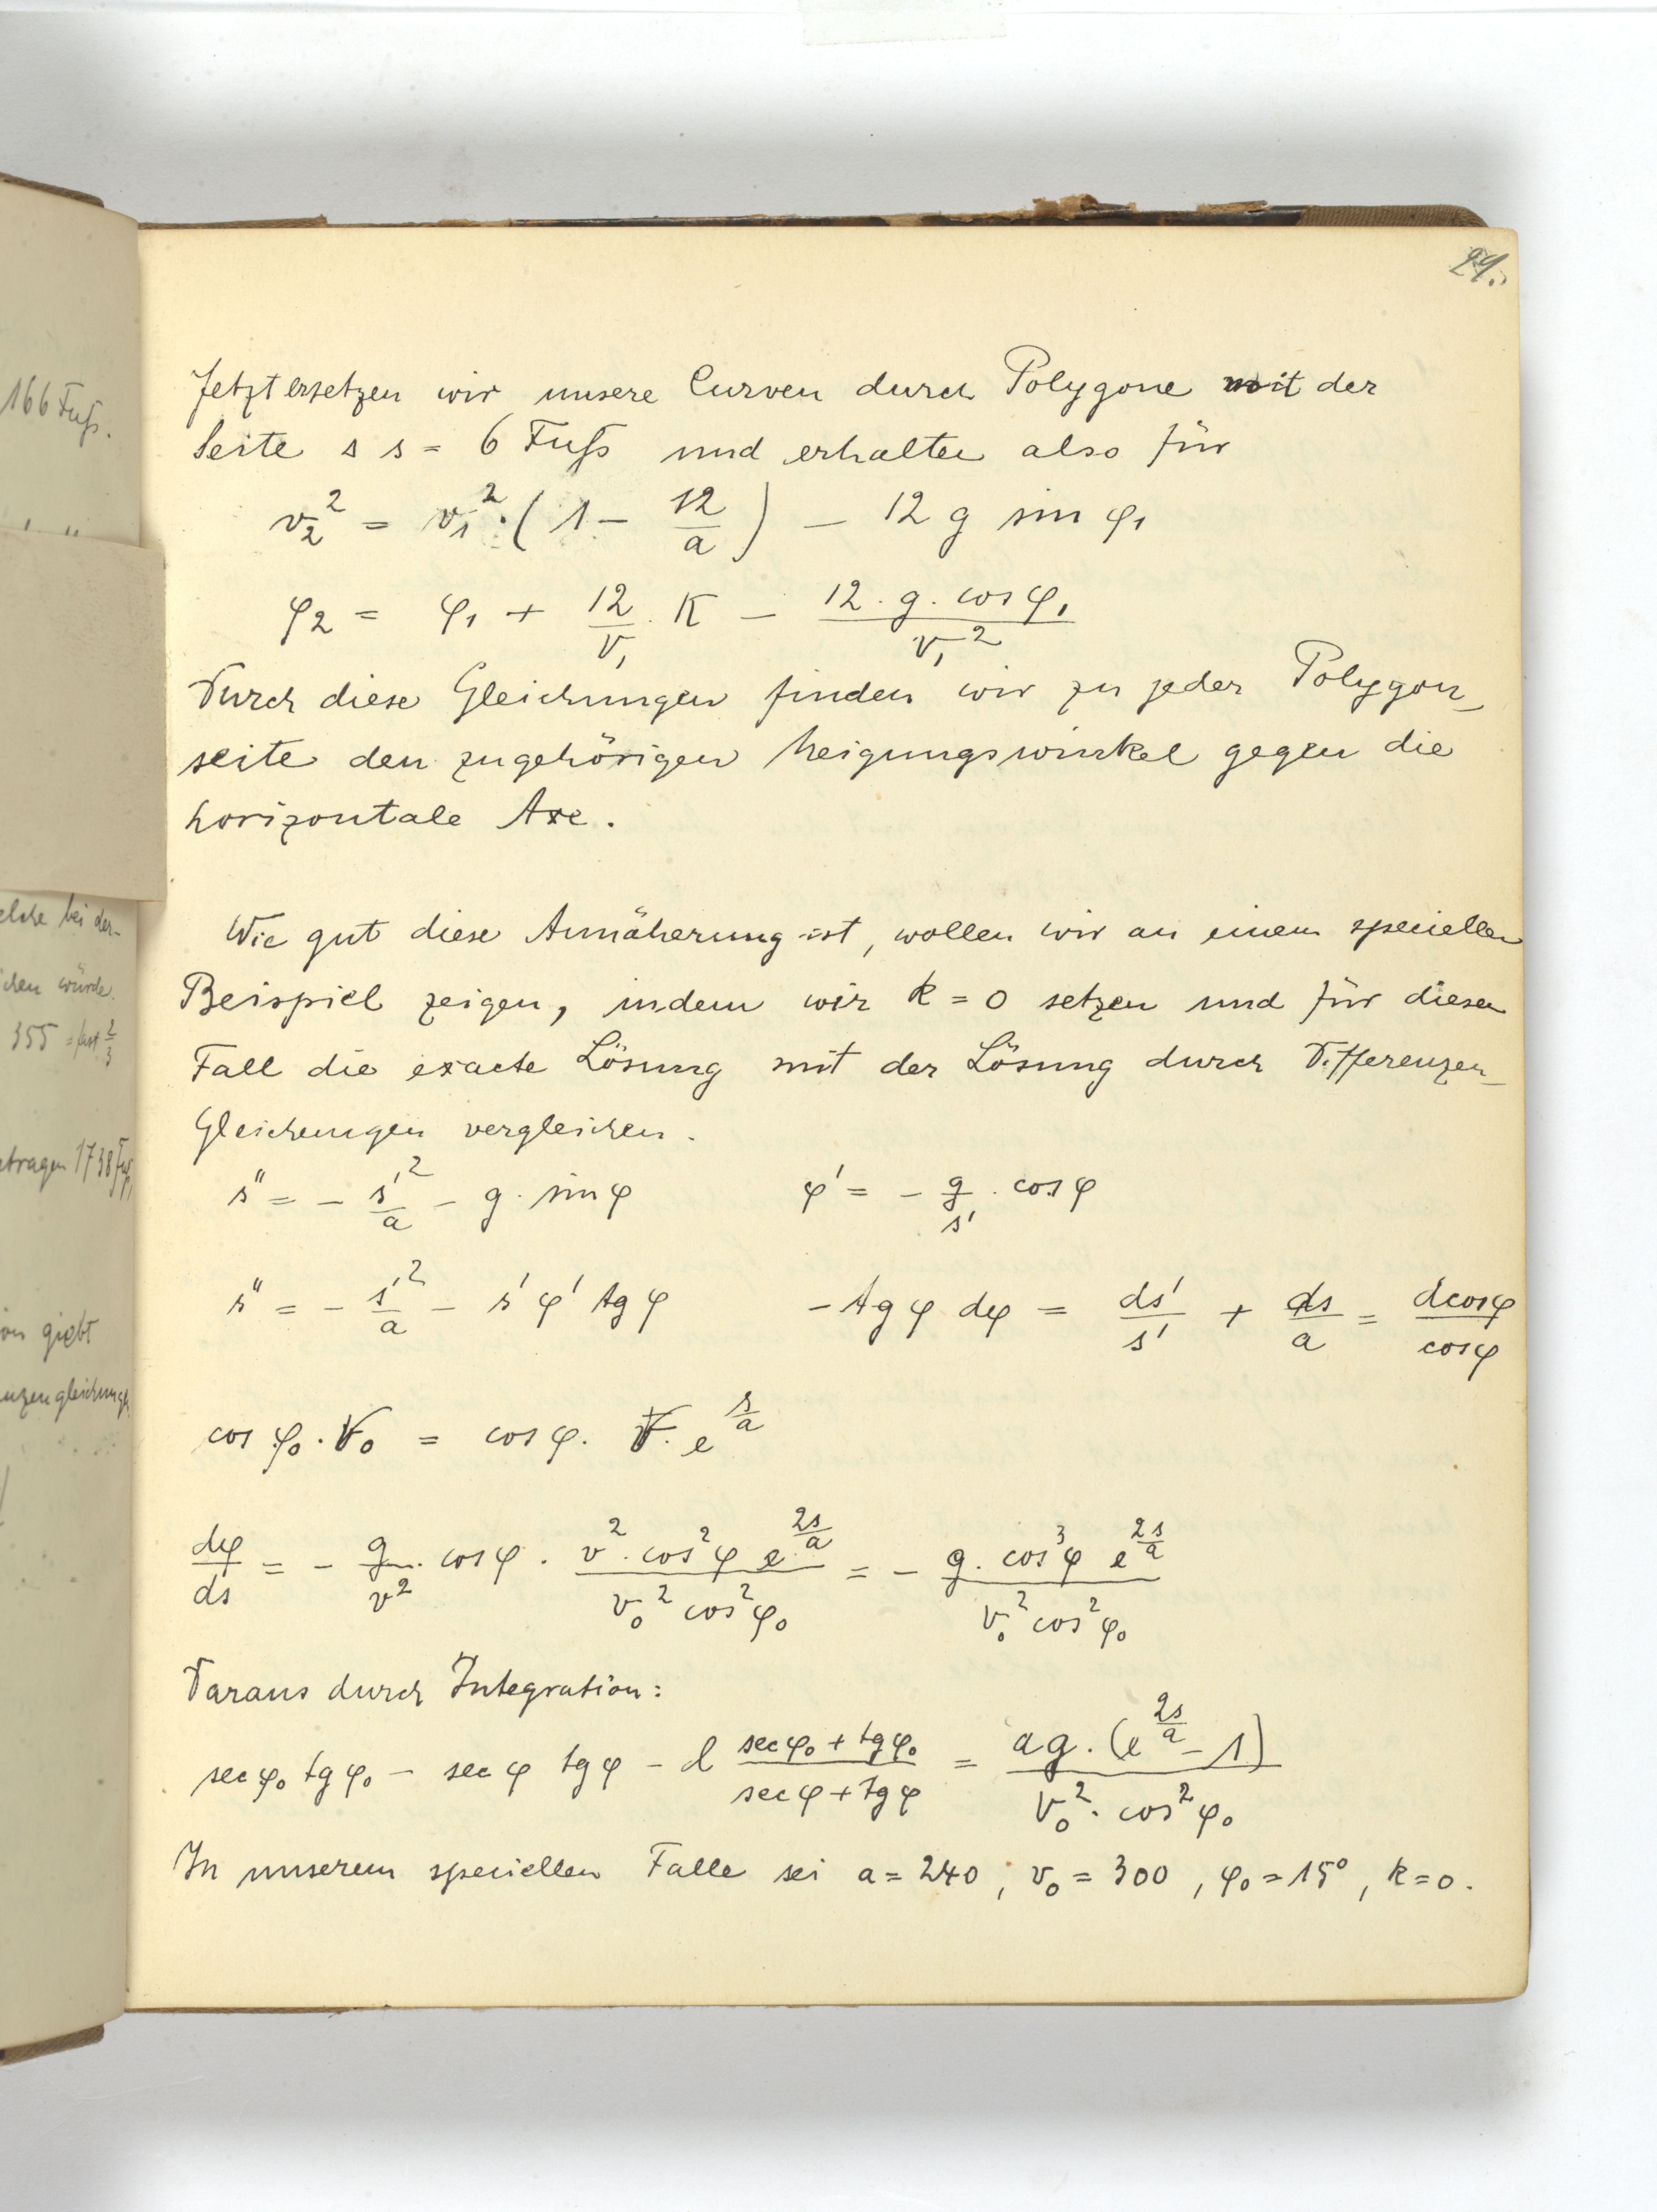 29.
166 Fuſs.
Jetzt ersetzen wir unsere Curven durch Polygone mit der
Seite s s = 6 Fuſs und erhalten also für
v₂² = v₁² · (1 − 12/a) − 12 g sin φ₁
φ₂ = φ₁ + 12/v₁ · K − 12 · g · cos φ₁ / v₁²
Durch diese Gleichungen finden wir zu jeder Polygon-
seite den zugehörigen Neigungswinkel gegen die
horizontale Axe.
Wie gut diese Annäherung ist, wollen wir an einem speciellen
Beispiel zeigen, indem wir k = 0 setzen und für diesen
Fall die exacte Lösung mit der Lösung durch Differenzen-
Gleichungen vergleichen.
s″ = − s′²/a − g · sin φ     φ′ = − g/s′ · cos φ
s″ = − s′²/a − s′ φ′ tg φ     − tg φ dφ = ds′/s′ + ds/a = dcosφ/cosφ
cos φ₀ · V₀ = cos φ · V · e^(s/a)
dφ/ds = − g/v² · cos φ · v² · cos²φ e^(2s/a) / v₀² cos²φ₀ = − g · cos³φ e^(2s/a) / v₀² cos²φ₀
Daraus durch Integration:
sec φ₀ tg φ₀ − sec φ tg φ − l (sec φ₀ + tg φ₀)/(sec φ + tg φ) = ag · (e^(2s/a) − 1) / V₀² · cos²φ₀
In unserem speciellen Falle sei a = 240, v₀ = 300, φ₀ = 15°, k = 0.
elche bei der-
chen würde.
355 = fast 2/3
tragen 1738 Fuſs
giebt
nzengleichung